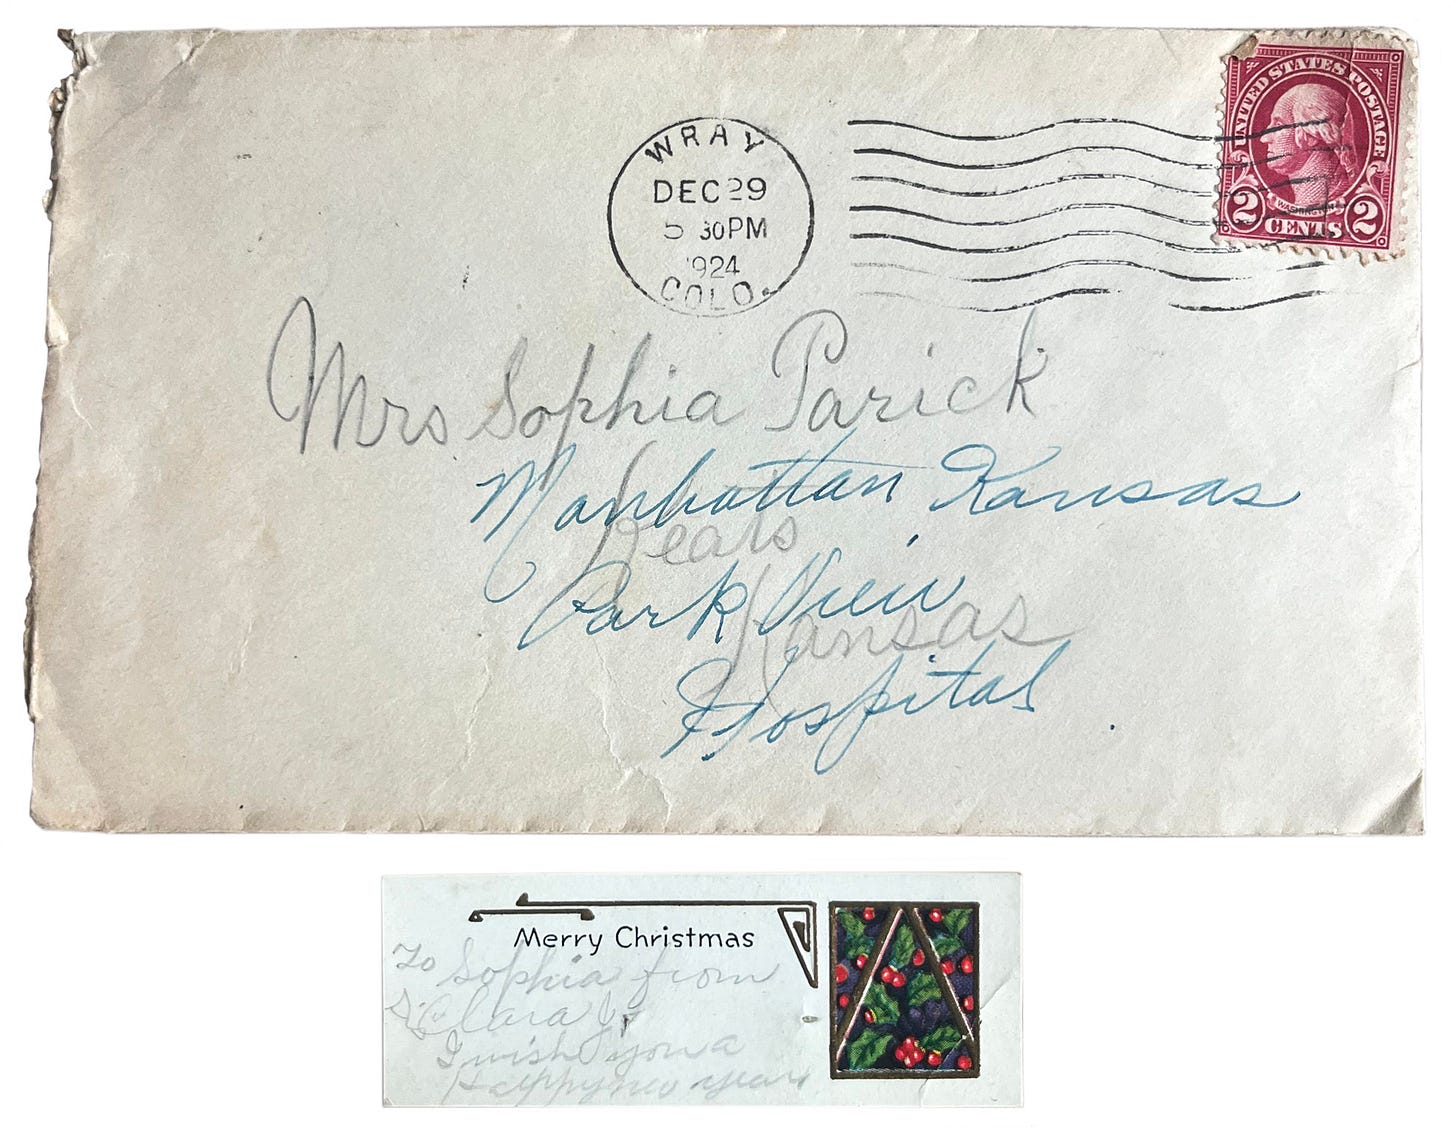 WRAY
DEC 29
5 30PM
1924
COLO.
UNITED STATES POSTAGE
WASHINGTON
2 CENTS 2
Mrs Sophia Parick
Manhattan Kansas
Park View
Kansas
Hospital
Merry Christmas
To Sophia from
Clara
I wish you a
Happy new year